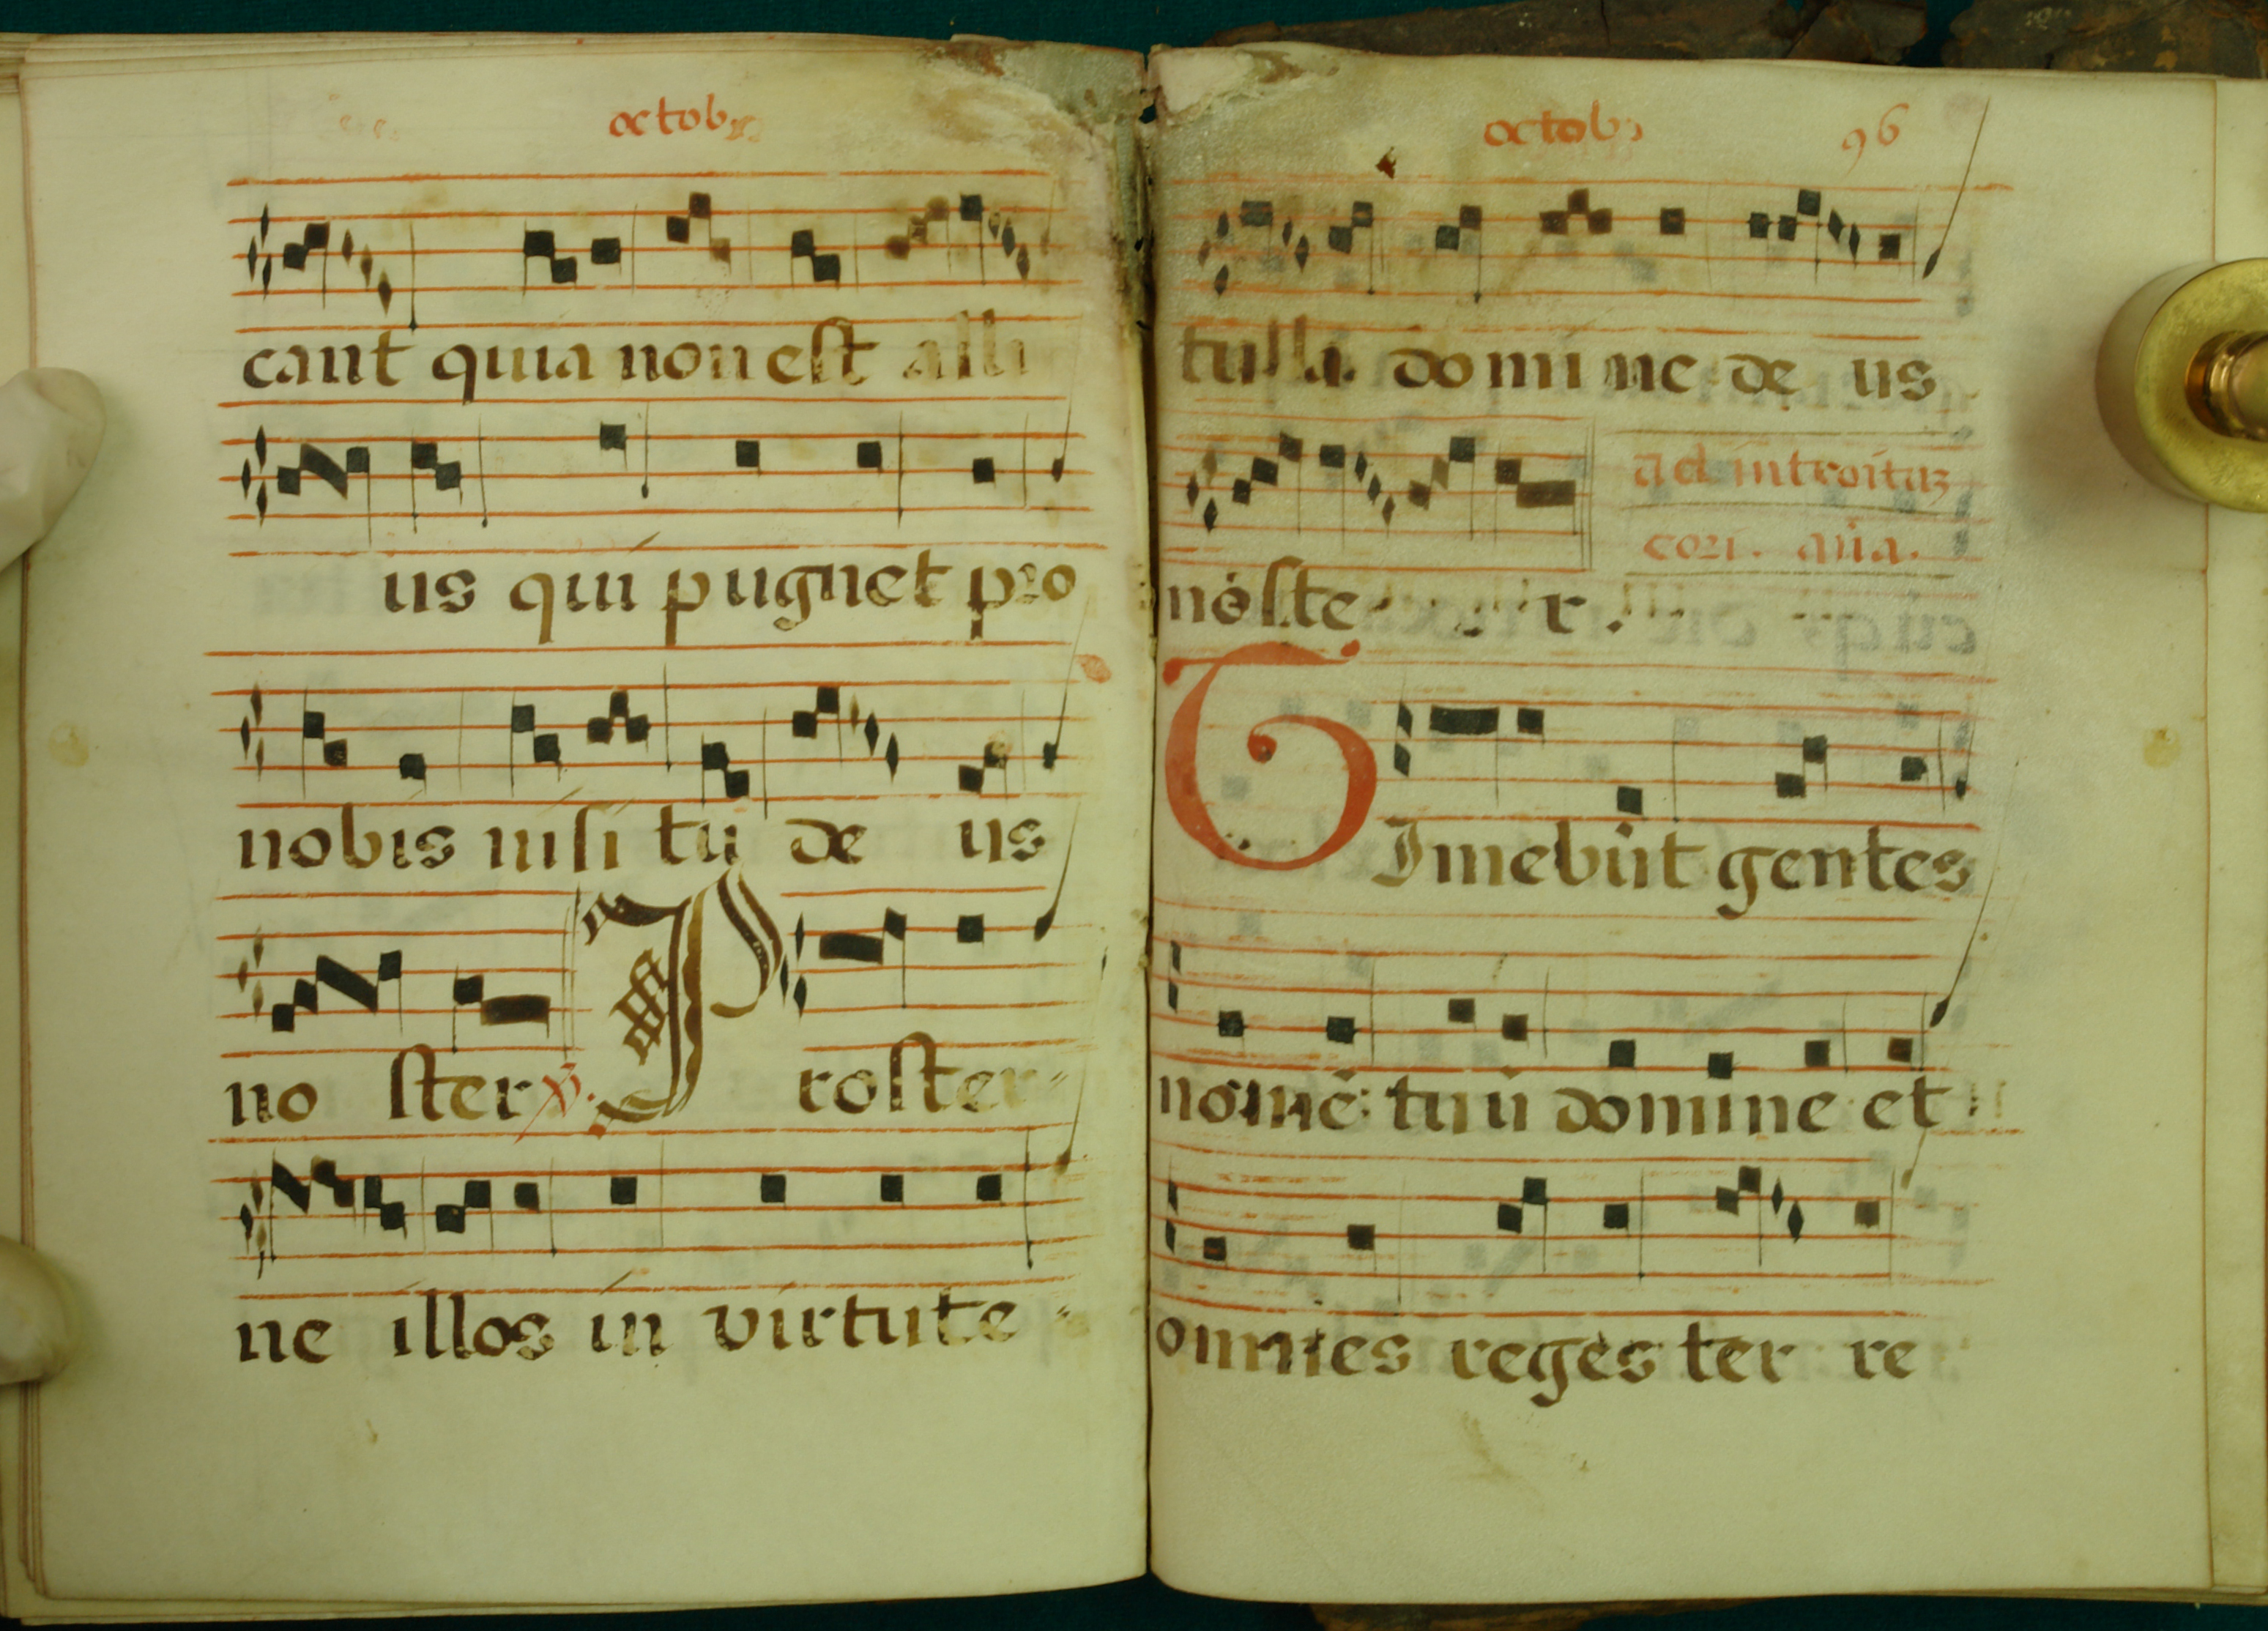 octob
cant quia non est alli
us qui pugnet pro
nobis nisi tu de us
no ster ℣. Proster-
ne illos in virtute-
octob 96
tulla domine de us
ad introitū
cori. aña.
noste r.
TImebūt gentes
nomē tuū domine et
omnes reges ter re